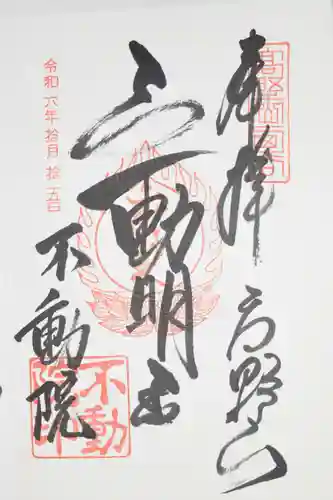 奉拝
高野山
不動明王
令和六年拾月拾五日
不動院
不動院印